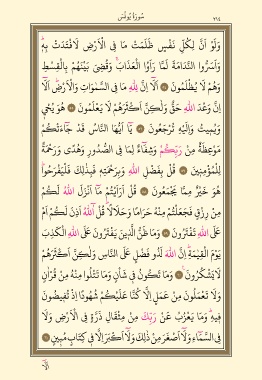 سُورَةُ يُونُسَ
٢١٤
وَلَوْ اَنَّ لِكُلِّ نَفْسٍ ظَلَمَتْ مَا فِي الْاَرْضِ لَافْتَدَتْ بِهٖۜ
وَاَسَرُّوا النَّدَامَةَ لَمَّا رَاَوُا الْعَذَابَۚ وَقُضِيَ بَيْنَهُمْ بِالْقِسْطِ
وَهُمْ لَا يُظْلَمُونَ اَلَٓا اِنَّ لِلّٰهِ مَا فِي السَّمٰوَاتِ وَالْاَرْضِۜ اَلَٓا
اِنَّ وَعْدَ اللّٰهِ حَقٌّ وَلٰكِنَّ اَكْثَرَهُمْ لَا يَعْلَمُونَ هُوَ يُحْيٖ
وَيُمٖيتُ وَاِلَيْهِ تُرْجَعُونَ يَٓا اَيُّهَا النَّاسُ قَدْ جَٓاءَتْكُمْ
مَوْعِظَةٌ مِنْ رَبِّكُمْ وَشِفَٓاءٌ لِمَا فِي الصُّدُورِ وَهُدًى وَرَحْمَةٌ
لِلْمُؤْمِنٖينَ قُلْ بِفَضْلِ اللّٰهِ وَبِرَحْمَتِهٖ فَبِذٰلِكَ فَلْيَفْرَحُواۜ
هُوَ خَيْرٌ مِمَّا يَجْمَعُونَ قُلْ اَرَاَيْتُمْ مَٓا اَنْزَلَ اللّٰهُ لَكُمْ
مِنْ رِزْقٍ فَجَعَلْتُمْ مِنْهُ حَرَامًا وَحَلَالًاۜ قُلْ آٰللّٰهُ اَذِنَ لَكُمْ اَمْ
عَلَى اللّٰهِ تَفْتَرُونَ وَمَا ظَنُّ الَّذٖينَ يَفْتَرُونَ عَلَى اللّٰهِ الْكَذِبَ
يَوْمَ الْقِيٰمَةِۜ اِنَّ اللّٰهَ لَذُو فَضْلٍ عَلَى النَّاسِ وَلٰكِنَّ اَكْثَرَهُمْ
لَا يَشْكُرُونَ وَمَا تَكُونُ فٖي شَأْنٍ وَمَا تَتْلُوا مِنْهُ مِنْ قُرْاٰنٍ
وَلَا تَعْمَلُونَ مِنْ عَمَلٍ اِلَّا كُنَّا عَلَيْكُمْ شُهُودًا اِذْ تُفٖيضُونَ
فٖيهِۜ وَمَا يَعْزُبُ عَنْ رَبِّكَ مِنْ مِثْقَالِ ذَرَّةٍ فِي الْاَرْضِ وَلَا
فِي السَّمَٓاءِ وَلَٓا اَصْغَرَ مِنْ ذٰلِكَ وَلَٓا اَكْبَرَ اِلَّا فٖي كِتَابٍ مُبٖينٍ
اَلَٓا